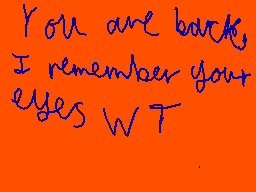 You are back,
I remember your
eyes WT